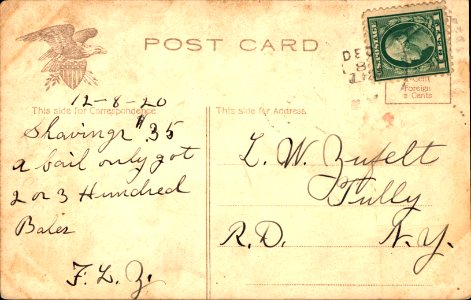 POST CARD
DEC
8
12-8-20
This side for Correspondence
This side for Address.
Foreign
2 Cents
Shavings $.35
a bail only got
2 or 3 Hundred
Bales
F. L. Z.
L. W. Zufelt
Tully
R.D. N.Y.